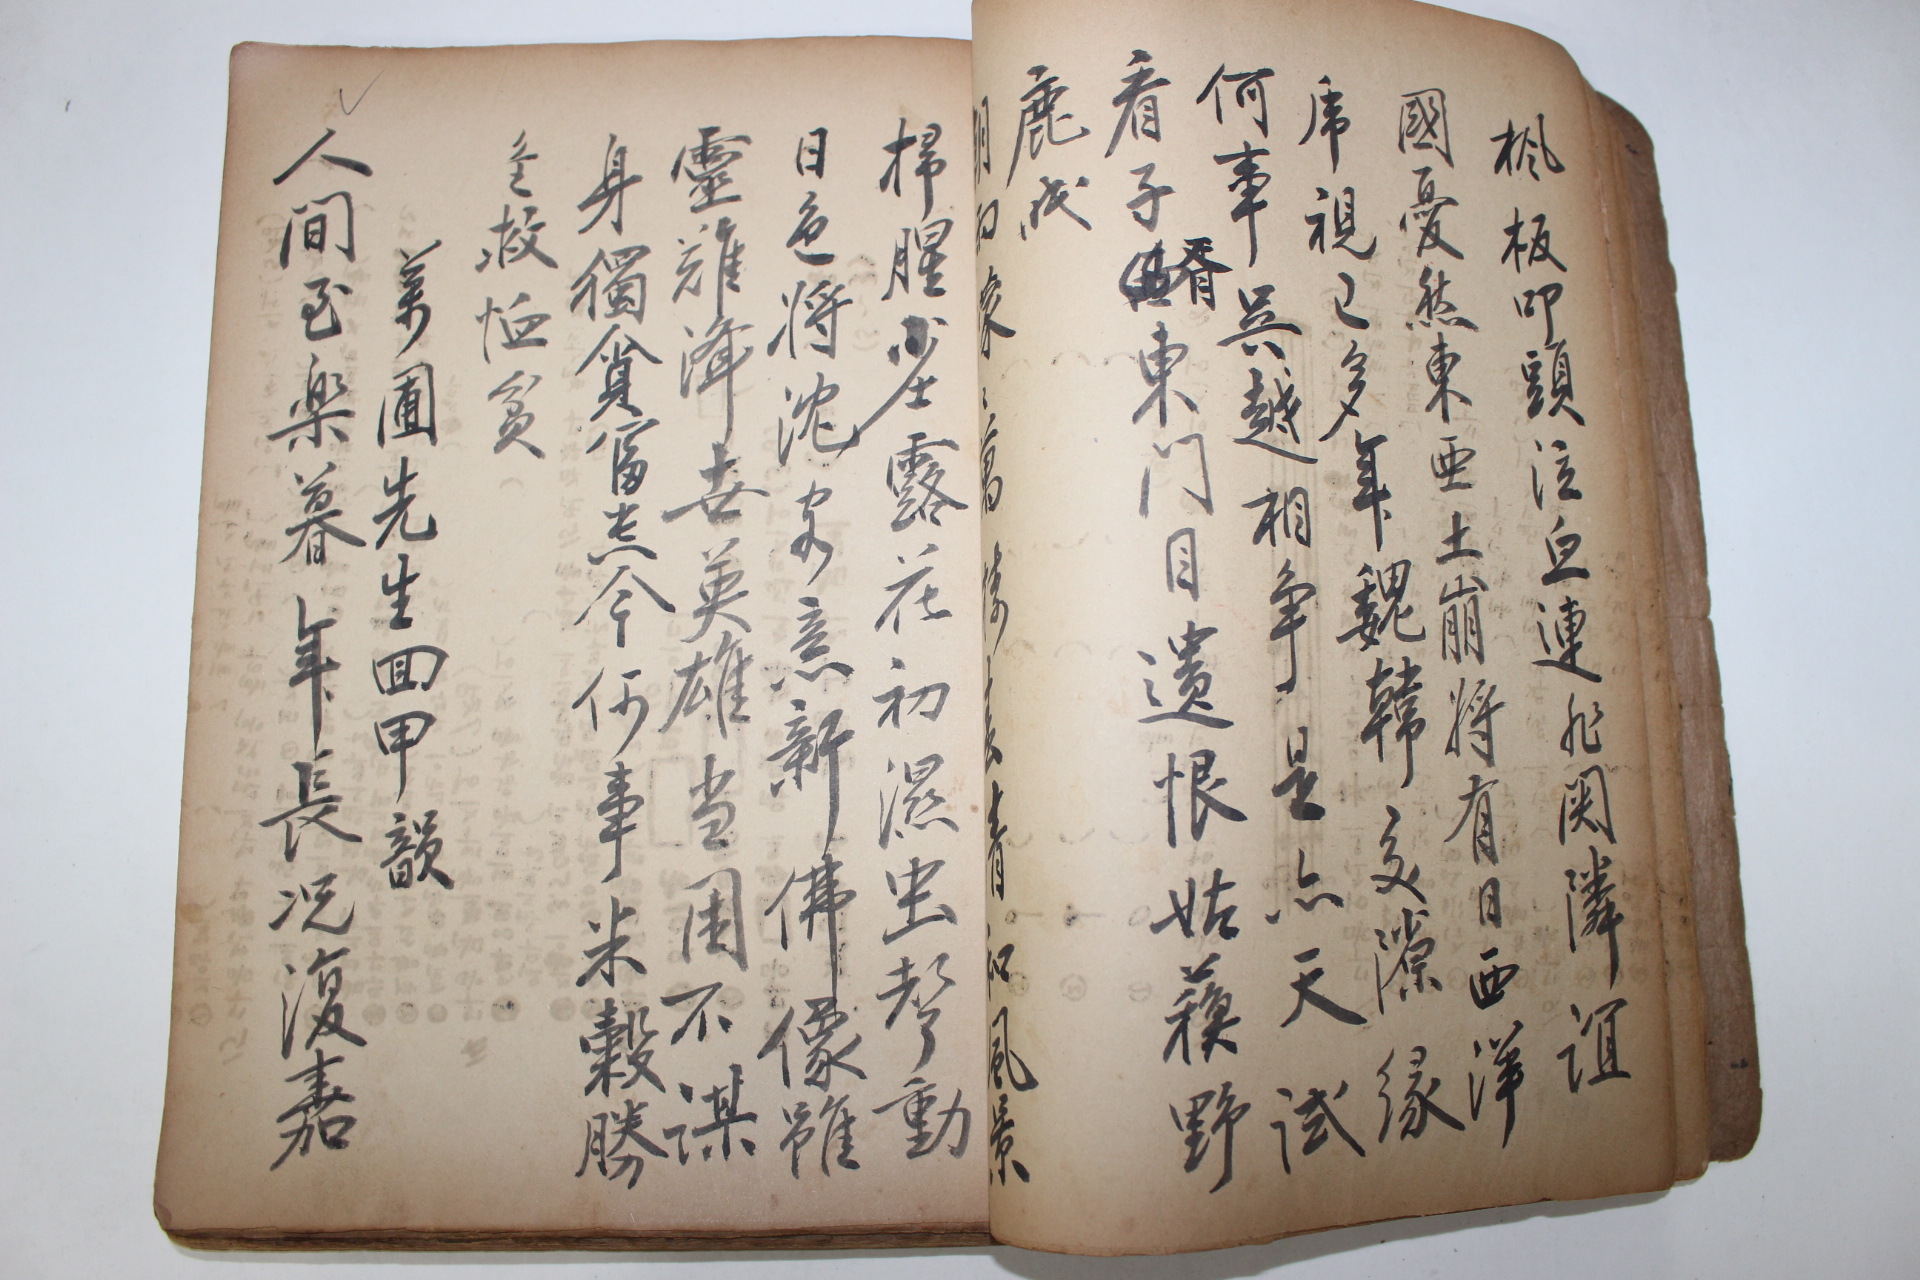 楓板叩頭泣血連 関隣誼
國憂愁東亜土崩將有日西洋
席視已多年魏韓交際緣
何事吳越相爭是亦天試
看子胥東門目遺恨姑蘇野
鹿成
青和風景
掃腥 露花初濕虫聲動
日色將沈客意新佛像雖
靈難降世英雄当困不謀
身獨貧富恙今何事米穀勝
金救恤貧
萬圃先生回甲韻
人間至楽暮年長况復嘉